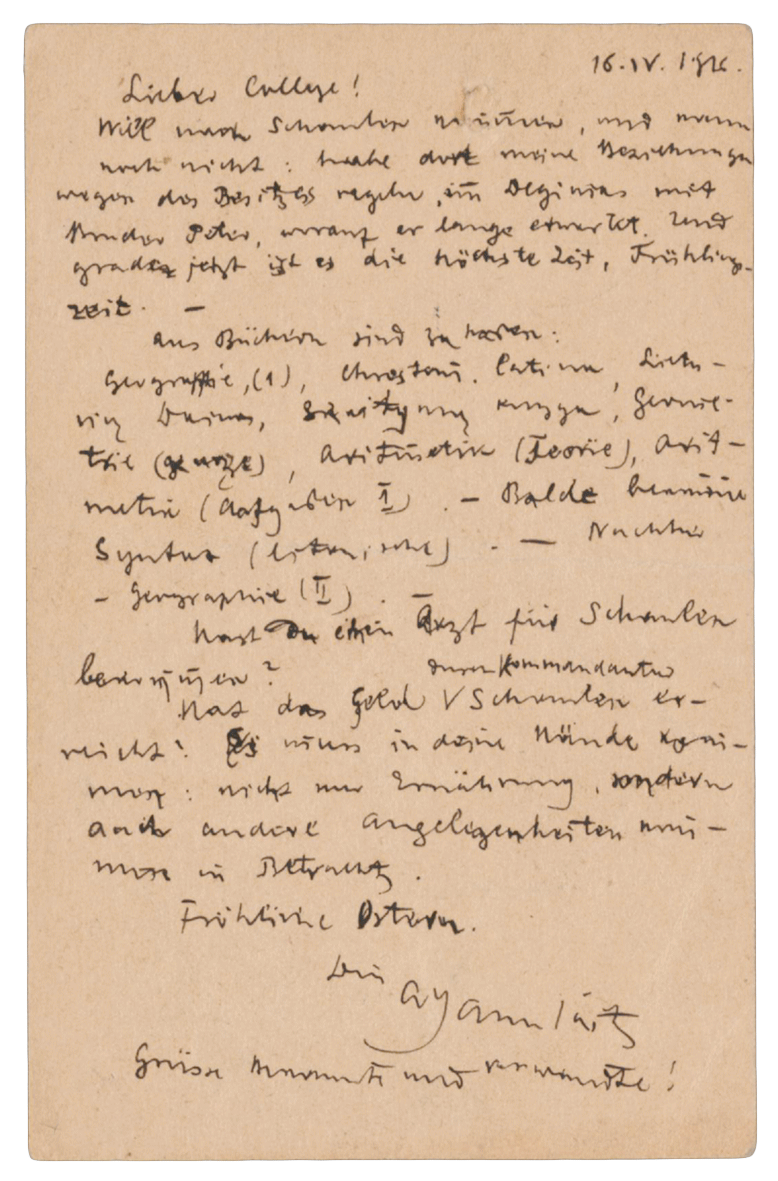 16.IV. 1916.
Lieber College!
Will nach Schaulen, und wenn
noch nicht: habe dort meine Beziehungen
wegen des Besitzes regeln, im mit
Bruder Peter, worauf er lange erwartet. Und
grade jetzt ist es die höchste Zeit, Frühlings-
zeit. —
Aus Büchern sind zu haben:
Geographie, (1), Chrestom. latina, Lietu-
vių Dainos, knyga, Geome-
trie (ganze), Aritmetik (Teorie), Arit-
metik (Aufgaben I). — Balde
Syntax (litauische). — Nachher
- Geographie (II). —
Hast Du ein Arzt für Schaulen
bekommen?
durch Kommandantur
Hat das Geld V Schaulen er-
reicht? Es muss in deine Hände kom-
men: nicht nur Ernährung, sondern
auch andere Angelegenheiten
in Betracht.
Fröhliche Ostern.
Dein
Grüsse Bekannte und Verwandte!